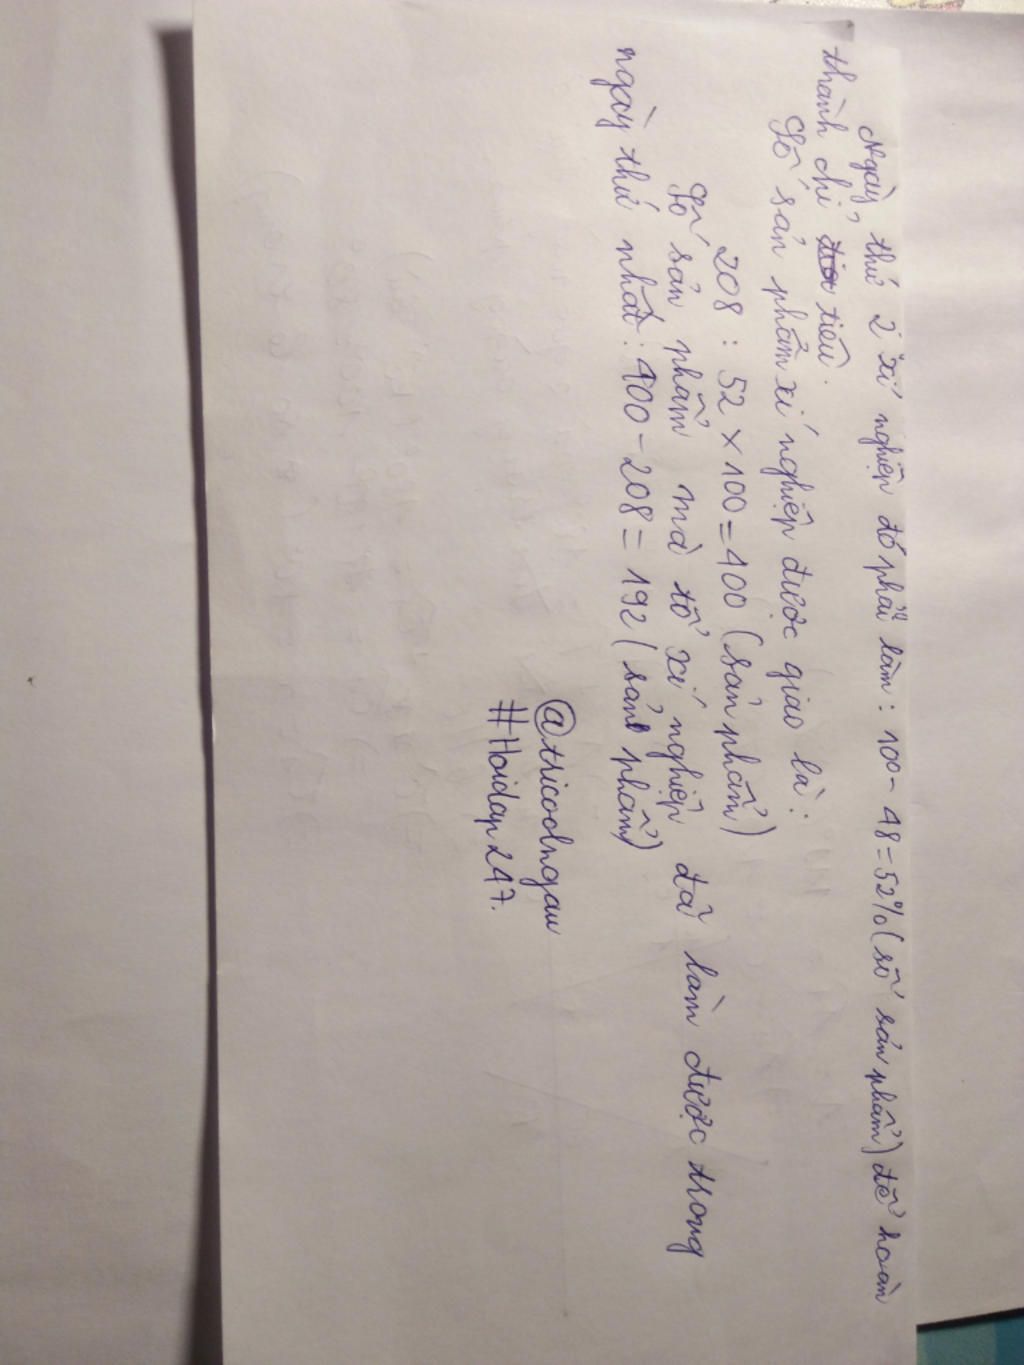 Ngày thứ 2 xí nghiệp đó phải làm : 100 - 48 = 52% (số sản phẩm) để hoàn
thành chỉ tiêu.
Số sản phẩm xí nghiệp được giao là :
208 : 52 × 100 = 400 (sản phẩm)
Số sản phẩm mà tổ xí nghiệp đã làm được trong
ngày thứ nhất : 400 - 208 = 192 (sản phẩm)
@tricoolngau
#Hoidap247.